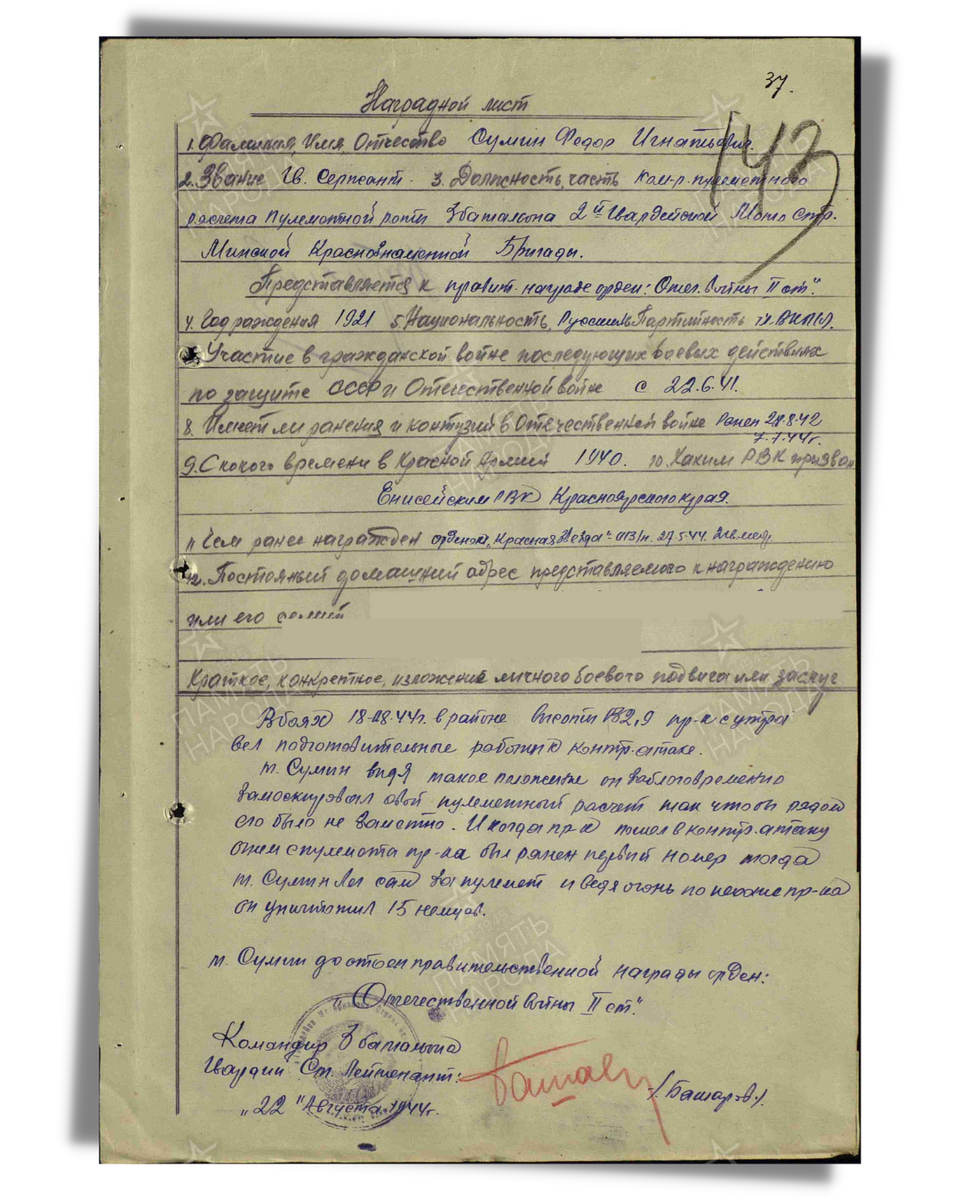 37.
143
Наградной лист
1. Фамилия, Имя, Отчество Сумин Федор Игнатьевич.
2. Звание Гв. Сержант. 3. Должность, часть Ком-р. пулеметного
расчета Пулеметной роты 3 батальона 2й Гвардейской Мото Стр.
Минской Краснознаменной Бригады.
Представляется к правит. награде орден: Отеч. войны II ст".
4. Год рождения 1921 5. Национальность Русский Партийность чл. ВКП/б/.
Участие в гражданской войне последующих боевых действиях
по защите СССР и Отечественной войне с 22.6.41.
8. Имеет ли ранения и контузий в Отечественной войне Ранен 28.8.42
7.7.44г.
9. С какого времени в Красной Армии 1940. 10. Каким РВК призван
Енисейским РВК Красноярского края.
11 Чем ранее награжден орденом „Красная Звезда" 27.5.44.
12. Постояный домашний адрес представляемого к награждению
или его семьи
Краткое, конкретное, изложение личного боевого подвига или заслуг
В боях 18-08-44г. в районе высоты 132,9 пр-к с утра
вел подготовительные работы к контр. атаке.
т. Сумин видя такое положение он заблоговременно
замоскировал свой пулеметный расчет так чтобы рядом
его было не заметно. И когда пр-к пошел в контр. атаку
огнем с пулемота пр-ка был ранен первый номер тогда
т. Сумин лег сам за пулемет и ведя огонь по пехоте пр-ка
он уничтожил 15 немцев.
т. Сумин достоен правительственной награды орден:
„Отечественной войны II ст".
Командир 3 батальона
Гвардии Ст. Лейтенант: /Башаров/.
„22" Августа 1944г.
ПАМЯТЬ НАРОДА